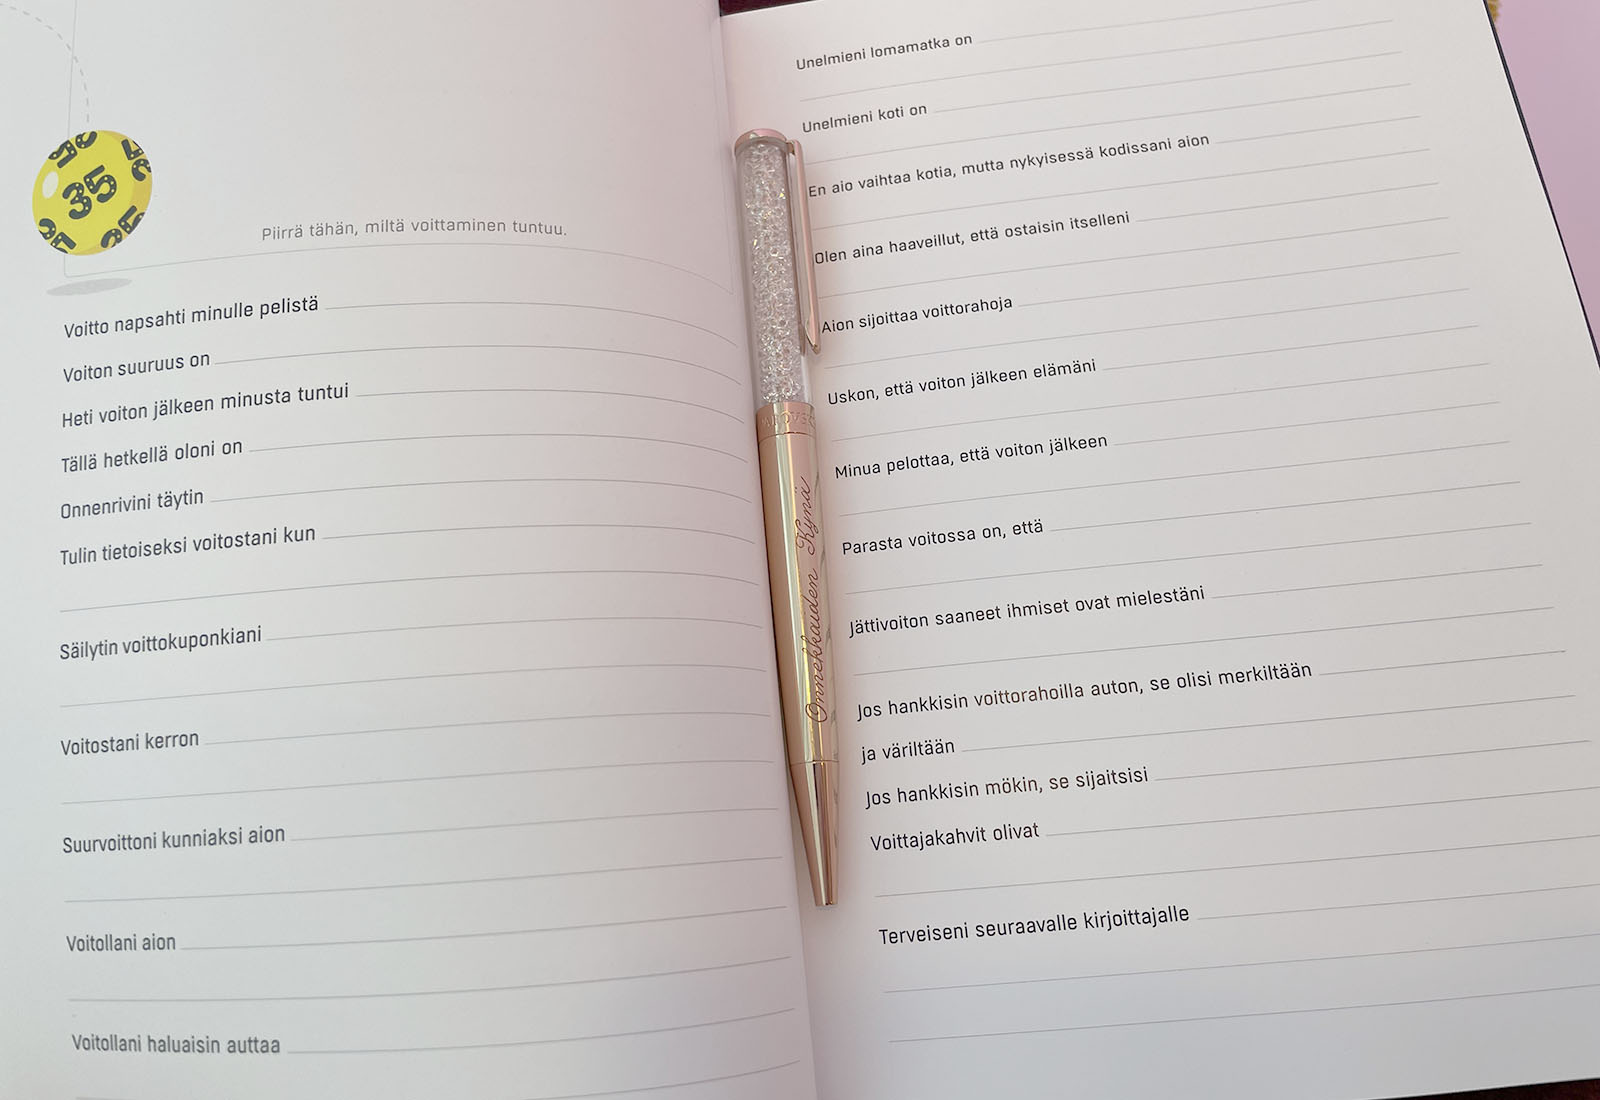 35
Piirrä tähän, miltä voittaminen tuntuu.
Voitto napsahti minulle pelistä
Voiton suuruus on
Heti voiton jälkeen minusta tuntui
Tällä hetkellä oloni on
Onnenrivini täytin
Tulin tietoiseksi voitostani kun
Säilytin voittokuponkiani
Voitostani kerron
Suurvoittoni kunniaksi aion
Voitollani aion
Voitollani haluaisin auttaa
Onnekkaiden Kynä
Unelmieni lomamatka on
Unelmieni koti on
En aio vaihtaa kotia, mutta nykyisessä kodissani aion
Olen aina haaveillut, että ostaisin itselleni
Aion sijoittaa voittorahoja
Uskon, että voiton jälkeen elämäni
Minua pelottaa, että voiton jälkeen
Parasta voitossa on, että
Jättivoiton saaneet ihmiset ovat mielestäni
Jos hankkisin voittorahoilla auton, se olisi merkiltään
ja väriltään
Jos hankkisin mökin, se sijaitsisi
Voittajakahvit olivat
Terveiseni seuraavalle kirjoittajalle